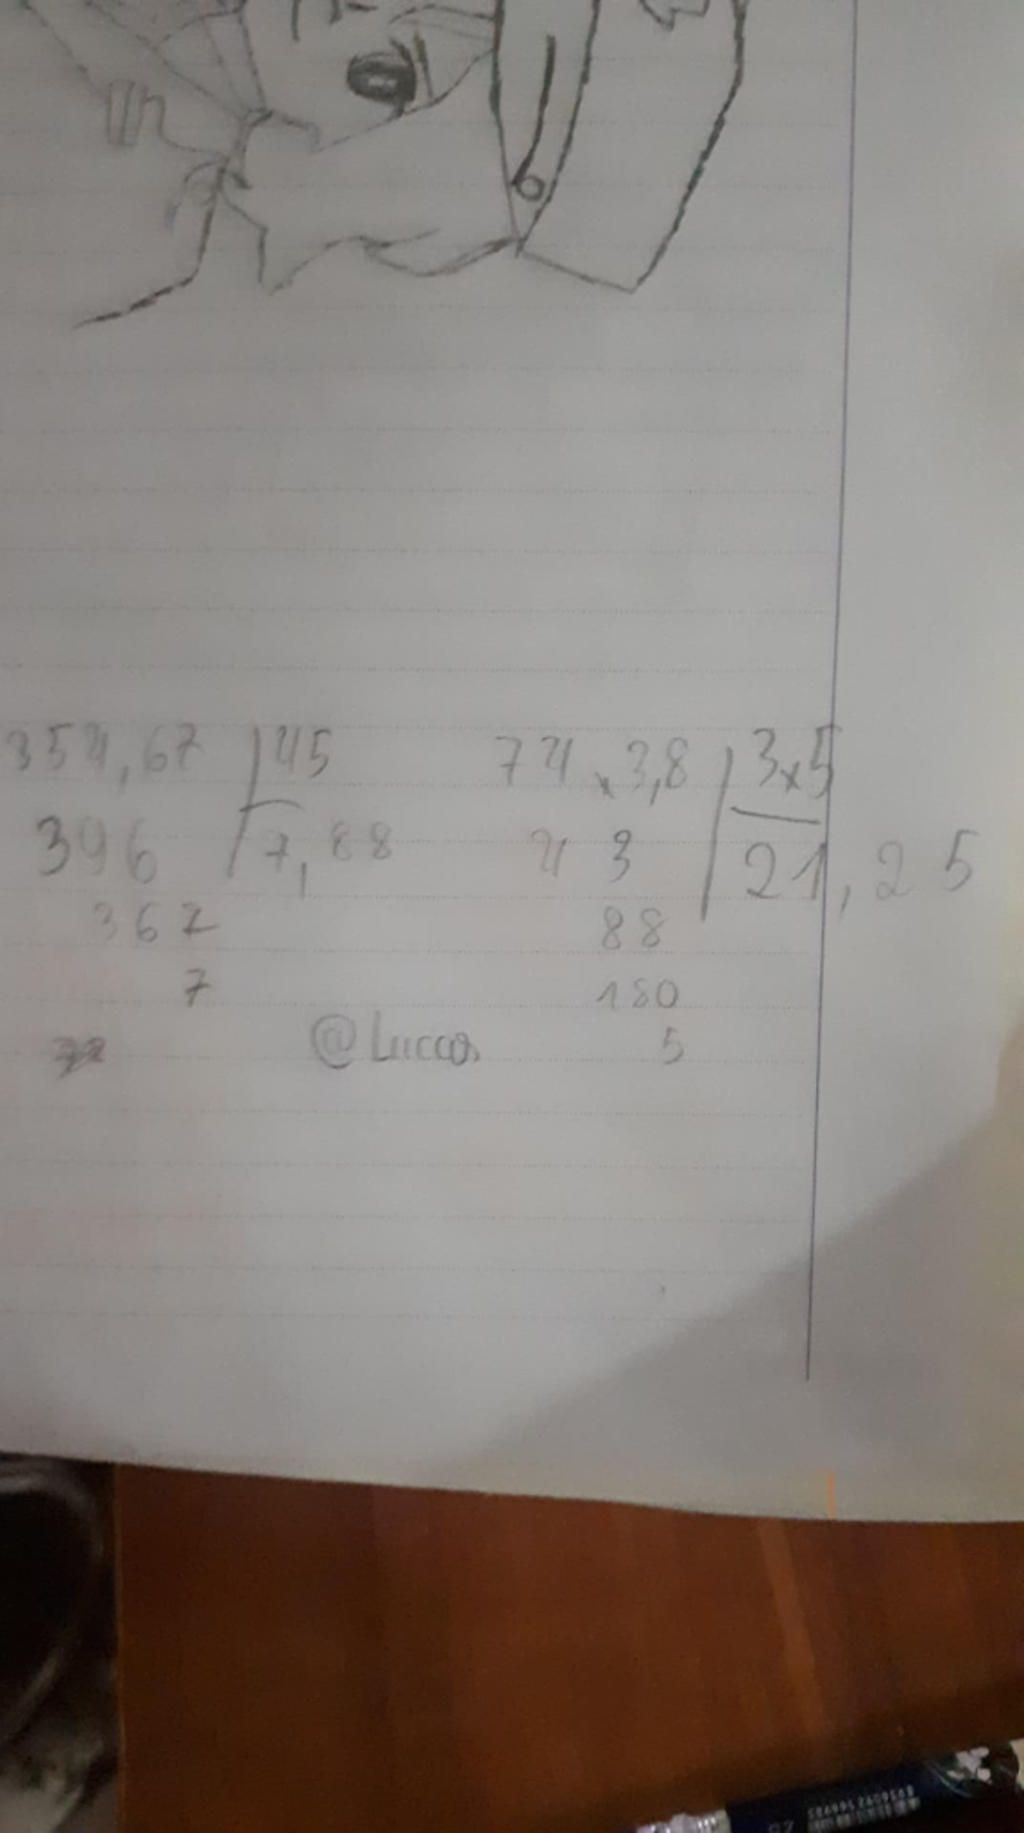 354,67 45
396 7,88
367
7
74,3,8 3,5
43 21,25
88
180
5
@Luccas